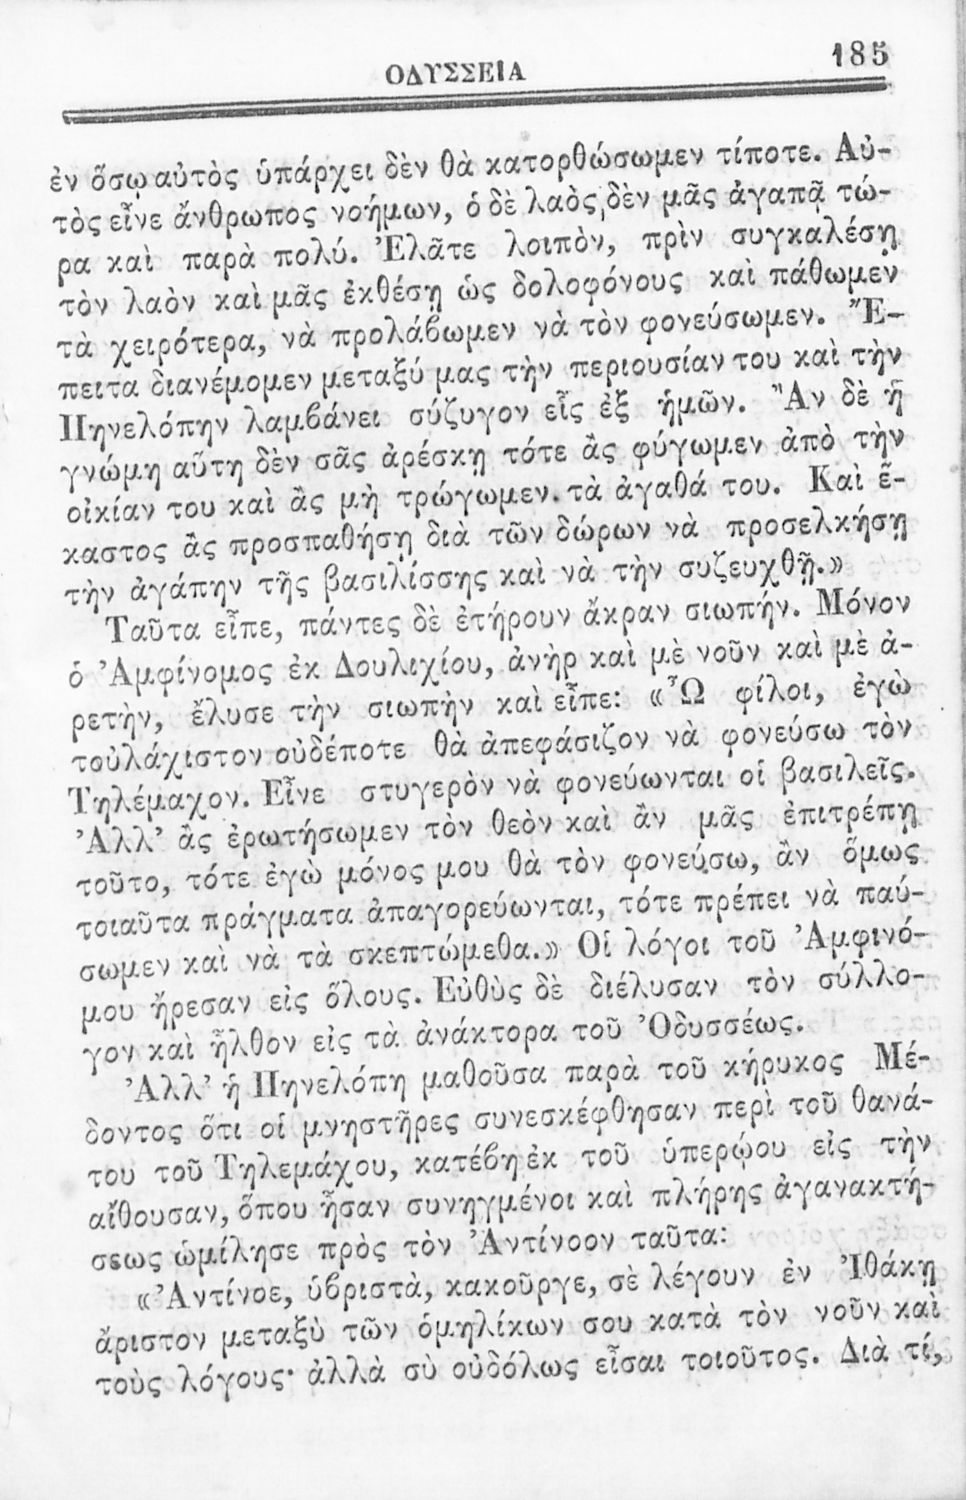 ΟΔΥΣΣΕΙΑ
185
ἐν ὅσῳ αὐτὸς ὑπάρχει δὲν θὰ κατορθώσωμεν τίποτε. Αὐ-
τὸς εἶνε ἄνθρωπος νοήμων, ὁ δὲ λαὸς δὲν μᾶς ἀγαπᾷ τώ-
ρα καὶ παρὰ πολύ. Ἐλᾶτε λοιπὸν, πρὶν συγκαλέσῃ
τὸν λαὸν καὶ μᾶς ἐκθέσῃ ὡς δολοφόνους καὶ πάθωμεν
τὰ χειρότερα, νὰ προλάβωμεν νὰ τὸν φονεύσωμεν. Ἔ-
πειτα διανέμομεν μεταξύ μας τὴν περιουσίαν του καὶ τὴν
Πηνελόπην λαμβάνει σύζυγον εἷς ἐξ ἡμῶν. Ἂν δὲ ἡ
γνώμη αὕτη δὲν σᾶς ἀρέσκῃ τότε ἂς φύγωμεν ἀπὸ τὴν
οἰκίαν του καὶ ἂς μὴ τρώγωμεν τὰ ἀγαθά του. Καὶ ἕ-
καστος ἂς προσπαθήσῃ διὰ τῶν δώρων νὰ προσελκήσῃ
τὴν ἀγάπην τῆς βασιλίσσης καὶ νὰ τὴν συζευχθῇ.»
Ταῦτα εἶπε, πάντες δὲ ἐτήρουν ἄκραν σιωπήν. Μόνον
ὁ Ἀμφίνομος ἐκ Δουλιχίου, ἀνὴρ καὶ μὲ νοῦν καὶ μὲ ἀ-
ρετὴν, ἔλυσε τὴν σιωπὴν καὶ εἶπε: «Ὦ φίλοι, ἐγὼ
τοὐλάχιστον οὐδέποτε θὰ ἀπεφάσιζον νὰ φονεύσω τὸν
Τηλέμαχον. Εἶνε στυγερὸν νὰ φονεύωνται οἱ βασιλεῖς.
Ἀλλ’ ἂς ἐρωτήσωμεν τὸν θεὸν καὶ ἂν μᾶς ἐπιτρέπῃ
τοῦτο, τότε ἐγὼ μόνος μου θὰ τὸν φονεύσω, ἂν ὅμως
τοιαῦτα πράγματα ἀπαγορεύωνται, τότε πρέπει νὰ παύ-
σωμεν καὶ νὰ τὰ σκεπτώμεθα.» Οἱ λόγοι τοῦ Ἀμφινό-
μου ἤρεσαν εἰς ὅλους. Εὐθὺς δὲ διέλυσαν τὸν σύλλο-
γον καὶ ἦλθον εἰς τὰ ἀνάκτορα τοῦ Ὀδυσσέως.
Ἀλλ’ ἡ Πηνελόπη μαθοῦσα παρὰ τοῦ κήρυκος Μέ-
δοντος ὅτι οἱ μνηστῆρες συνεσκέφθησαν περὶ τοῦ θανά-
του τοῦ Τηλεμάχου, κατέβη ἐκ τοῦ ὑπερῴου εἰς τὴν
αἴθουσαν, ὅπου ἦσαν συνηγμένοι καὶ πλήρης ἀγανακτή-
σεως ὡμίλησε πρὸς τὸν Ἀντίνοον ταῦτα:
«Ἀντίνοε, ὑβριστὰ, κακοῦργε, σὲ λέγουν ἐν Ἰθάκῃ
ἄριστον μεταξὺ τῶν ὁμηλίκων σου κατὰ τὸν νοῦν καὶ
τοὺς λόγους· ἀλλὰ σὺ οὐδόλως εἶσαι τοιοῦτος. Διὰ τί,